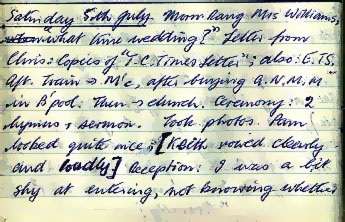 Saturday 5th July. Mum rang Mrs Williams,
"what time wedding?" Letter from
Chris: copies of "T.C. Times Letter"; also: E.TS.
Aft. Train → M'c, after buying G.N, M.M
in B'pool. Then → church. Ceremony: 2
hymns & sermon. Took photos. Pam
looked quite nice; [Keith voiced clearly
and loudly] Reception: I was a bit
shy at entering, not knowing whether